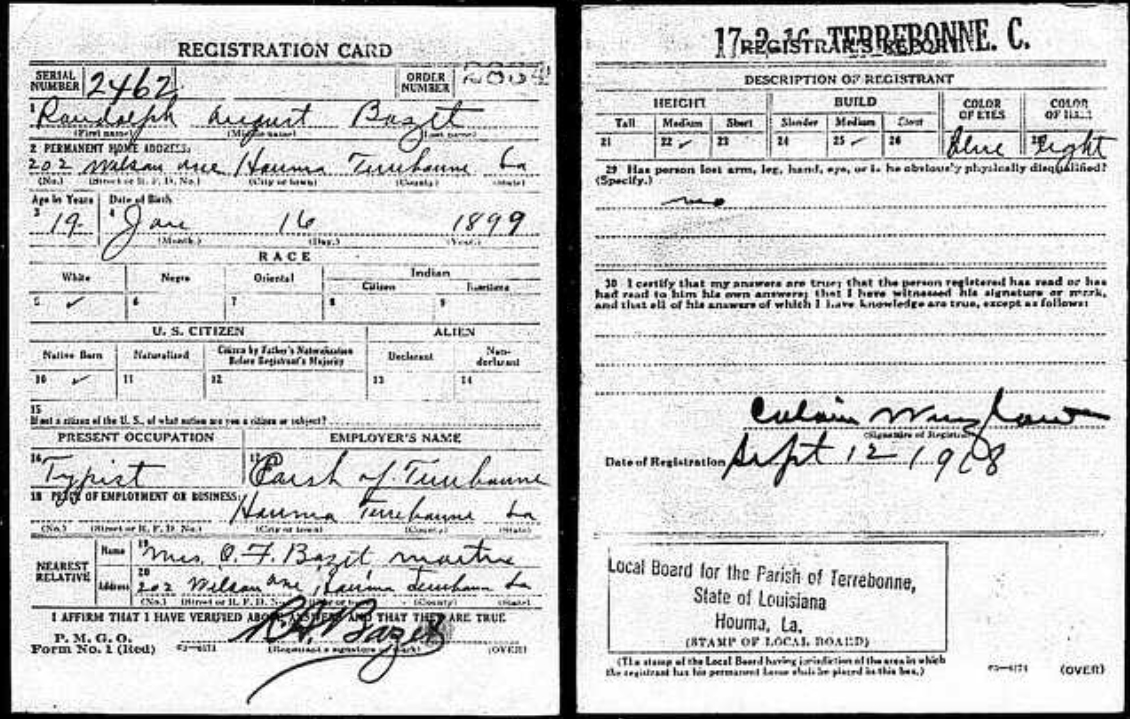 REGISTRATION CARD
SERIAL NUMBER 2462 ORDER NUMBER
1 Randolph August Bazet
(First name) (Middle name) (Last name)
2 PERMANENT HOME ADDRESS:
202 Wilson ave Houma Terrebonne La
(No.) (Street or R. F. D. No.) (City or town) (County) (State)
Age in Years Date of Birth
3 19 4 Jan 16 1899
(Month.) (Day.) (Year.)
RACE
White Negro Oriental Indian
Citizen Noncitizen
5 ✓ 6 7 8 9
U. S. CITIZEN ALIEN
Native Born Naturalized Citizen by Father's Naturalization Before Registrant's Majority Declarant Non-declarant
10 ✓ 11 12 13 14
15
If not a citizen of the U. S., of what nation are you a citizen or subject?
PRESENT OCCUPATION EMPLOYER'S NAME
16 Typist 17 Parsh of Terrebonne
18 PLACE OF EMPLOYMENT OR BUSINESS:
Houma Terrebonne La
(No.) (Street or R. F. D. No.) (City or town) (County) (State)
NEAREST RELATIVE
Name 19 Mrs. O. F. Bazet
Address 20 202 Wilson ave, Houma Terrebonne La
(No.) (Street or R. F. D. No.) (City or town) (County) (State)
I AFFIRM THAT I HAVE VERIFIED ABOVE ANSWERS AND THAT THEY ARE TRUE
P. M. G. O.
Form No. 1 (Red) 03—6171 Bazet (Registrant's signature or mark) (OVER)
17-2-16 TERREBONNE. C.
REGISTRAR'S REPORT
DESCRIPTION OF REGISTRANT
HEIGHT BUILD COLOR OF EYES COLOR OF HAIR
Tall Medium Short Slender Medium Stout
21 22 ✓ 23 24 25 ✓ 26 Blue Light
29 Has person lost arm, leg, hand, eye, or is he obviously physically disqualified?
(Specify.)
no
30 I certify that my answers are true; that the person registered has read or has
had read to him his own answers; that I have witnessed his signature or mark,
and that all of his answers of which I have knowledge are true, except as follows:
(Signature of Registrar)
Date of Registration Sept 12 1918
Local Board for the Parish of Terrebonne,
State of Louisiana
Houma, La.
(STAMP OF LOCAL BOARD)
(The stamp of the Local Board having jurisdiction of the area in which
the registrant has his permanent home shall be placed in this box.)
03—6171 (OVER)